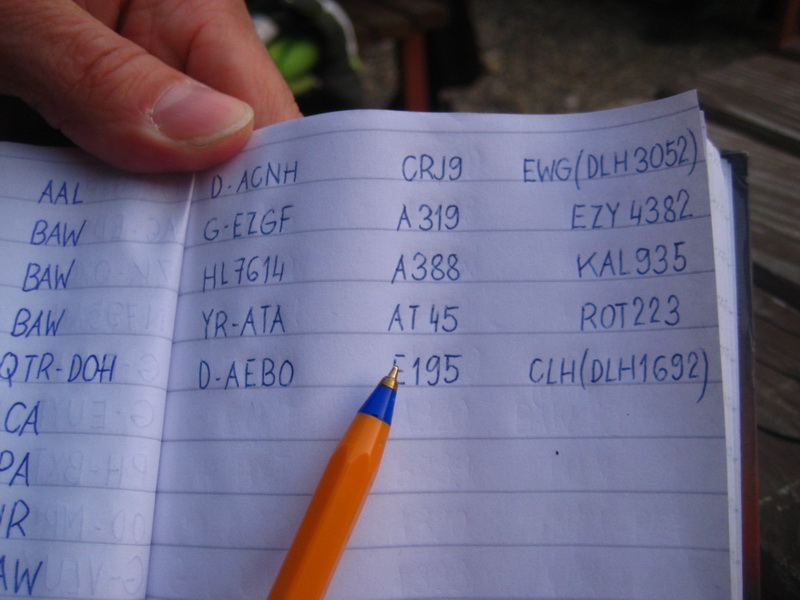 AAL D-ACNH CRJ9 EWG(DLH3052)
BAW G-EZGF A319 EZY 4382
BAW HL7614 A388 KAL935
BAW YR-ATA AT45 ROT223
QTR-DOH D-AEBO E195 CLH(DLH1692)
CA
PA
R
AW